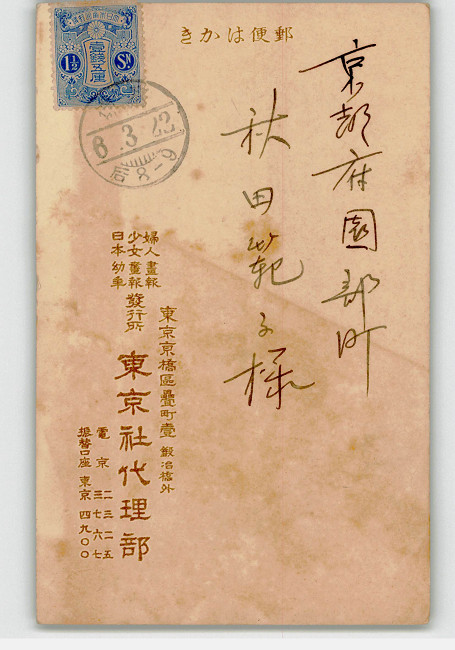 郵便はかき
京都府園部町
秋田範子様
1½ Sn
壹錢五厘
8.3.22
后8-9
婦人畫報
少女畫報
日本幼年
發行所
東京京橋區疊町壹
鍛冶橋外
東京社代理部
電京
二三二五
三七六七
振替口座東京四九〇〇